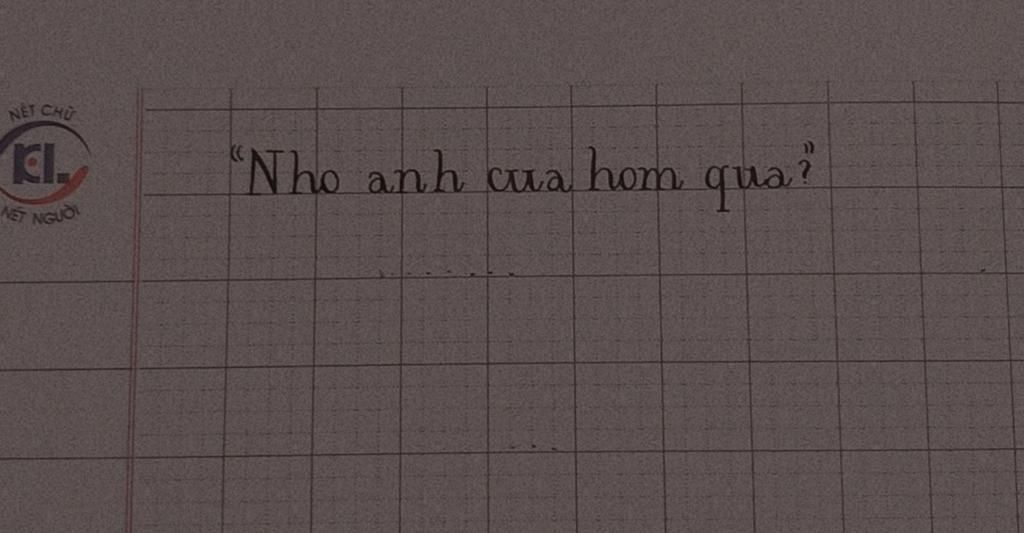 NÉT CHỮ
KL.
NẾT NGƯỜI
“Nho anh cua hom qua?”